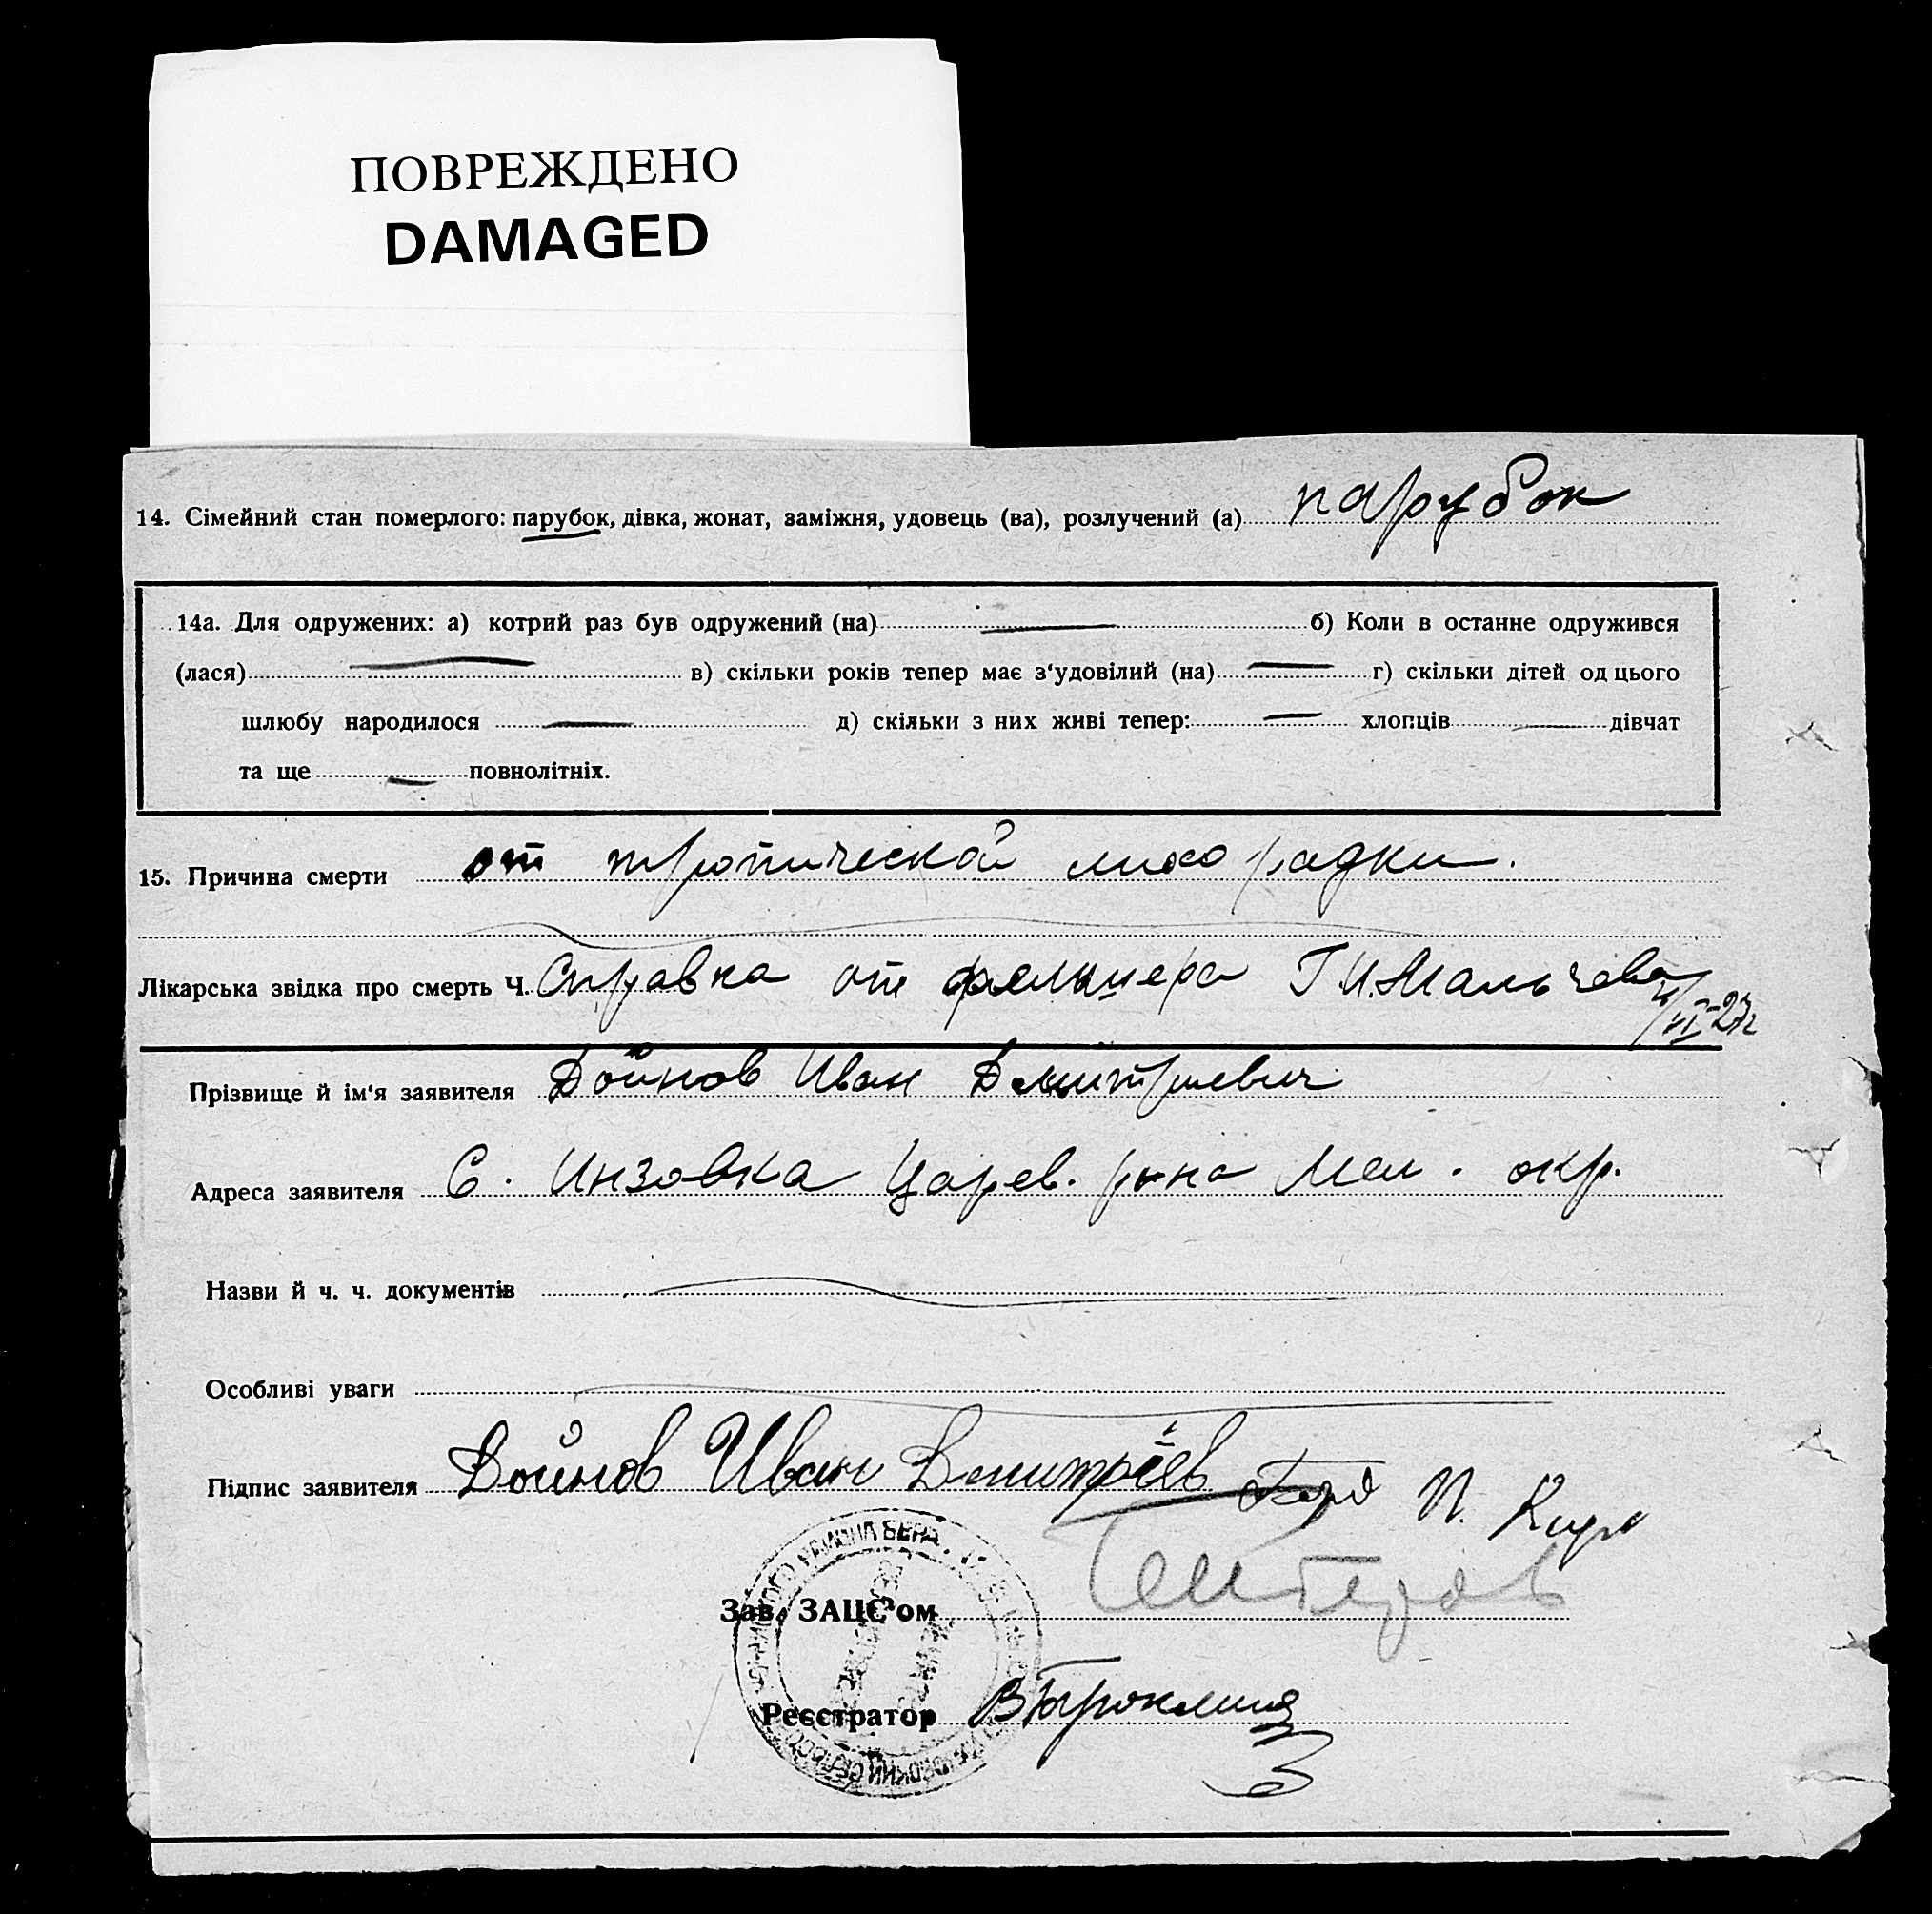 ПОВРЕЖДЕНО
DAMAGED
14. Сімейний стан померлого: парубок, дівка, жонат, заміжня, удовець (ва), розлучений (а) парубок
14а. Для одружених: а) котрий раз був одружений (на) — б) Коли в останне одружився
(лася) — в) скільки років тепер має з'удовілий (на) — г) скільки дітей од цього
шлюбу народилося — д) скільки з них живі тепер: — хлопців — дівчат
та ще — повнолітніх.
15. Причина смерти от тропической лихорадки.
Лікарська звідка про смерть Ч. Справка от фельшера Г. И. Мальчева
VI-27г
Прізвище й ім'я заявителя Дойнов Иван Дмитриевич
Адреса заявителя С. Инзовка Царев. р-на Мел. окр.
Назви й ч. ч. документів
Особливі уваги
Підпис заявителя Дойнов Иван Дмитрієв
Зав. ЗАЦС'ом
Реєстратор